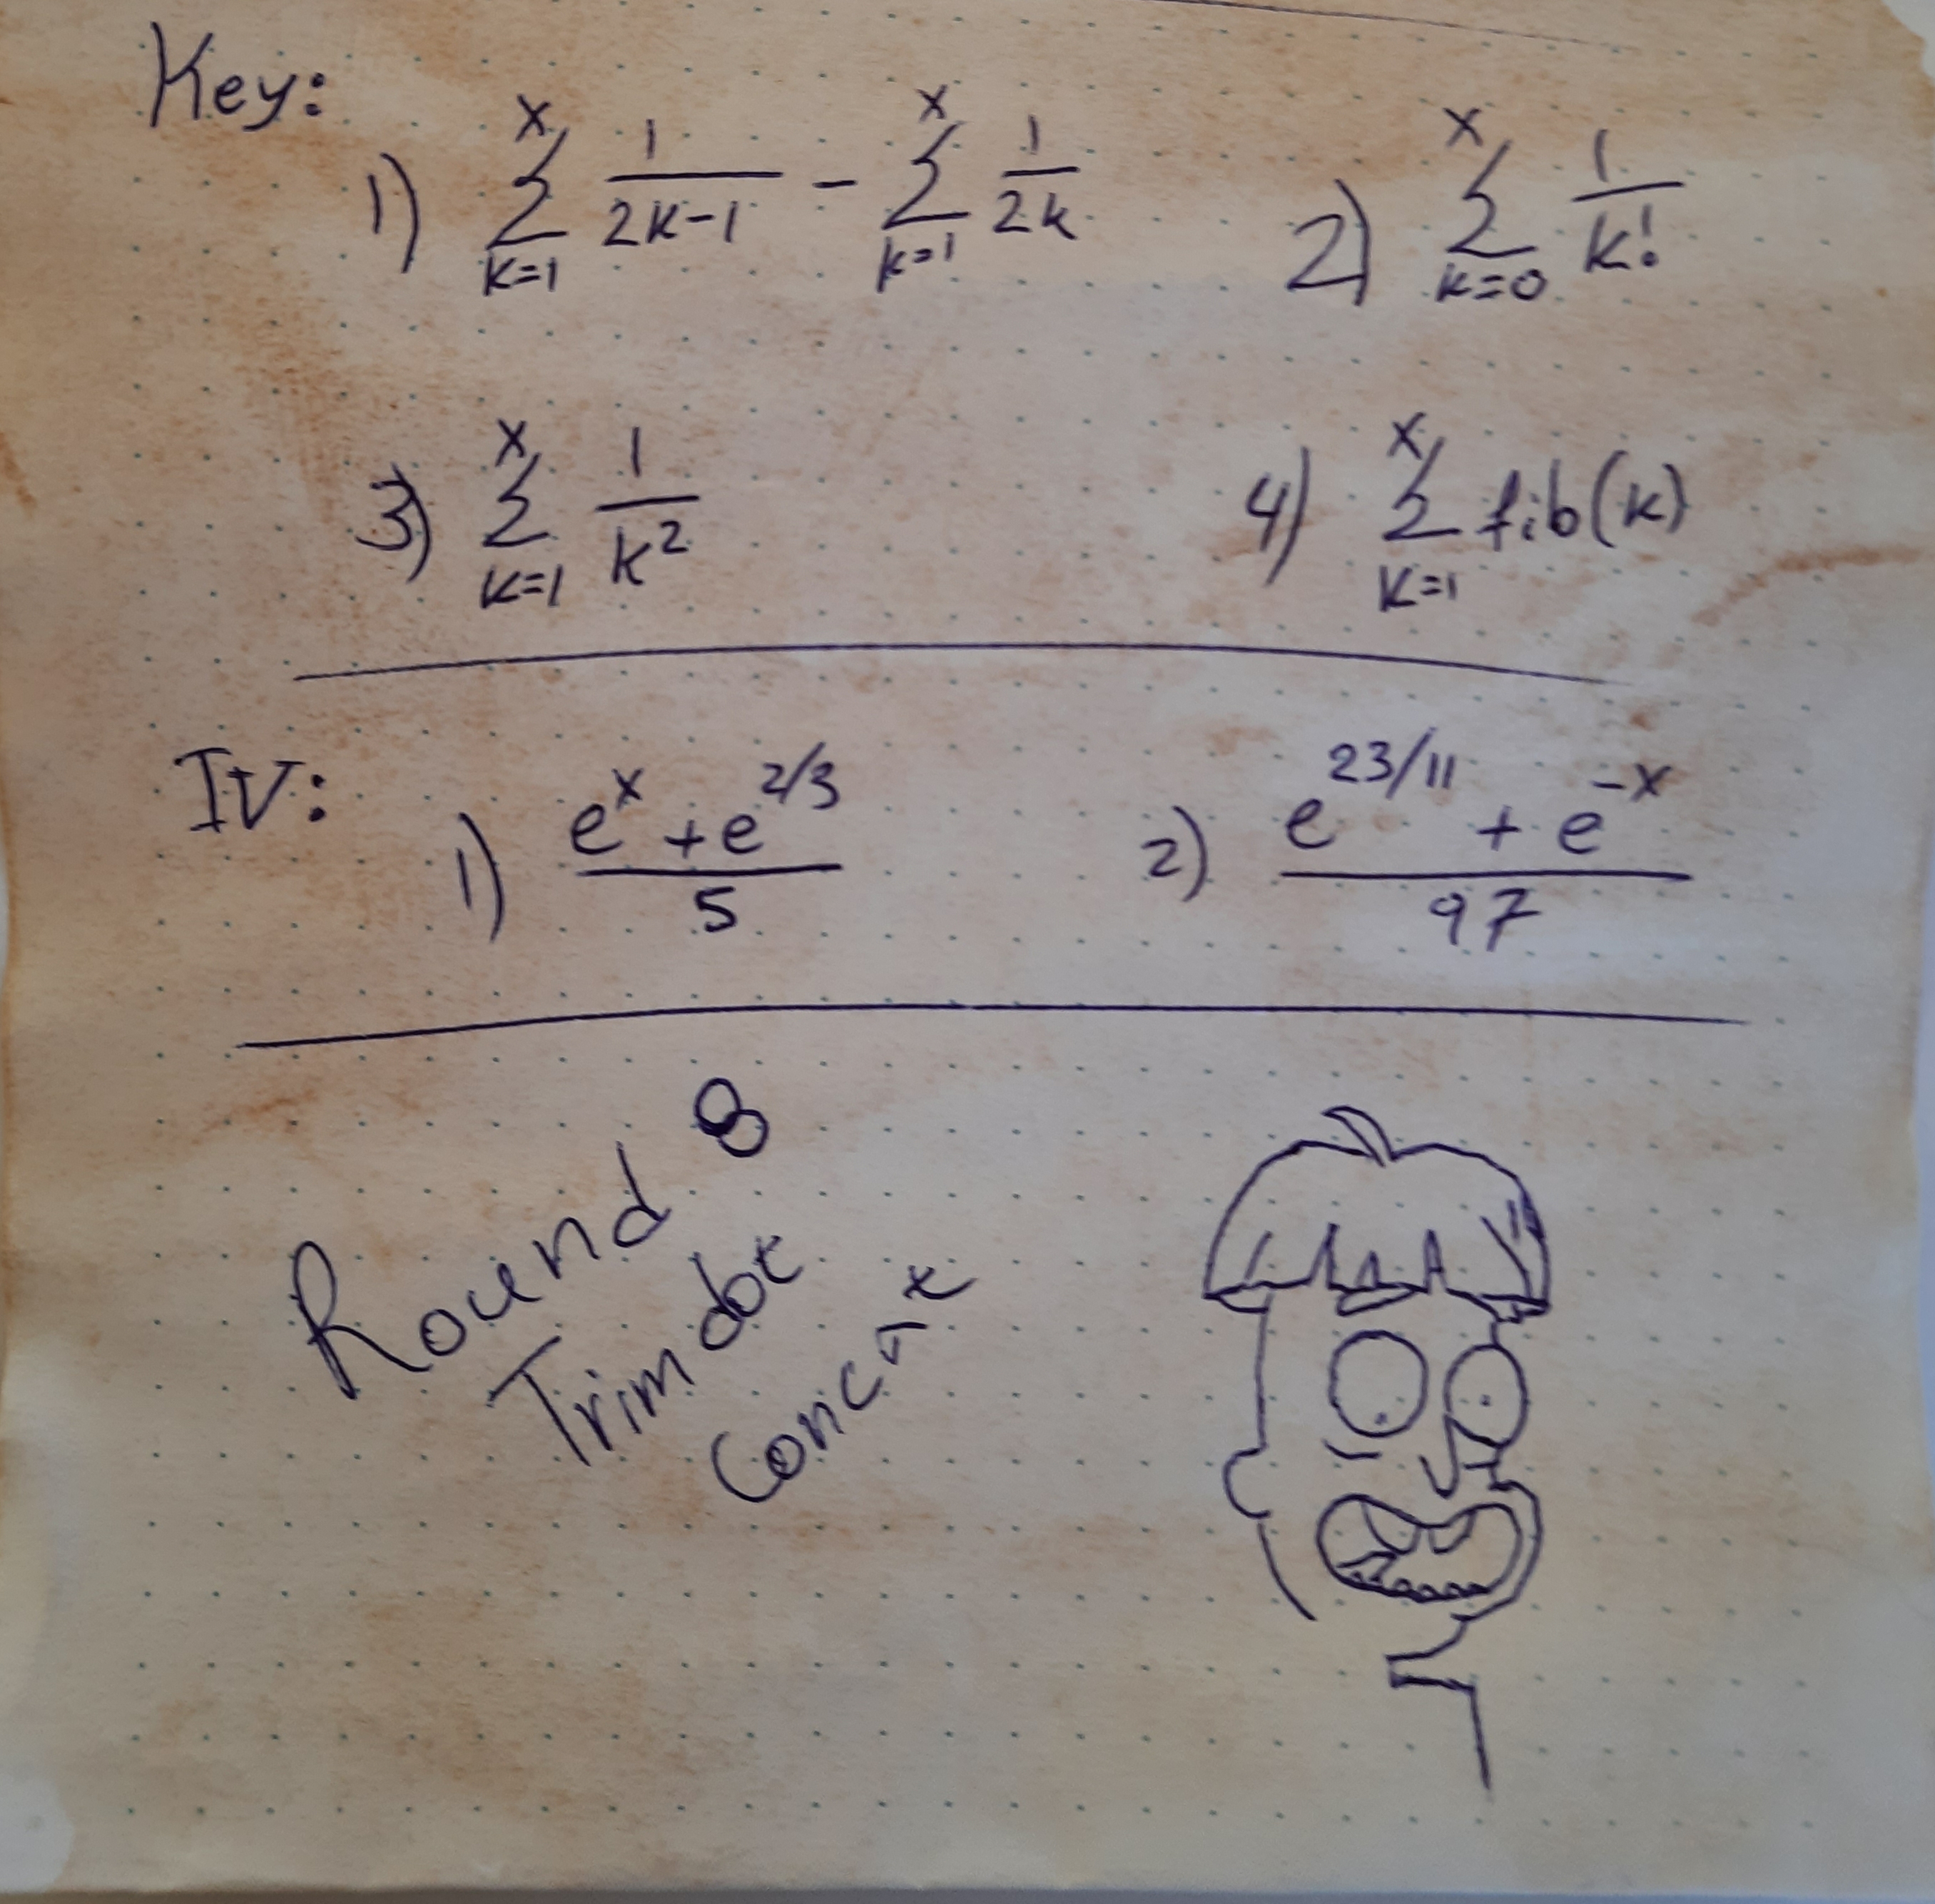 Key:
1) x Σ k=1 1/(2k-1) - x Σ k=1 1/(2k) 2) x Σ k=0 1/k!
3) x Σ k=1 1/k² 4) x Σ k=1 fib(k)
IV:
1) (e^x + e^(2/3))/5 2) (e^(23/11) + e^(-x))/97
Round 8
Trim dot
Concat